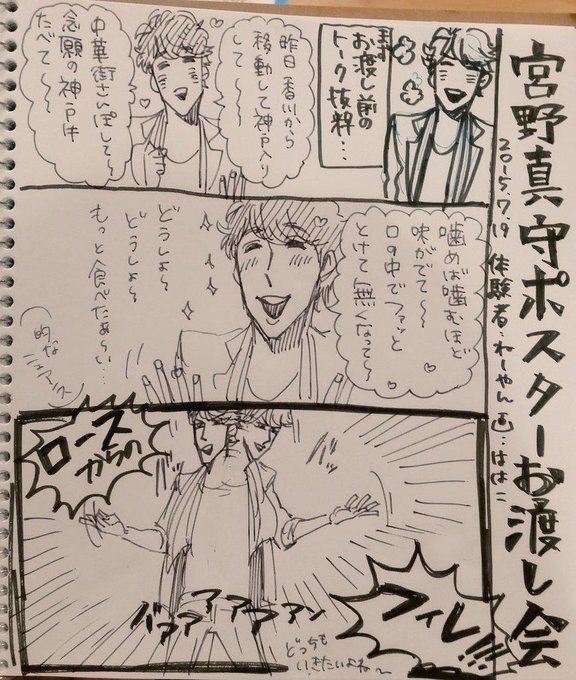 宮野真守ポスターお渡し会
2015.7.19 体験者:れーやん 画:はは二
まずお渡し前の
トーク抜粋…
昨日香川から
移動して神戸入り
して〜〜
中華街さんぽして〜〜
念願の神戸牛
たべて〜〜
噛めば噛むほど
味がでて〜〜
口の中でファッと
とけて無くなって〜〜
どうしよ〜
どうしよ〜
もっと食べたぁ〜らい…
(的な
ニュアンス)
ロース
からの
フィレ!!!
バァアアアァァアン
どっちも
いきたいよね〜